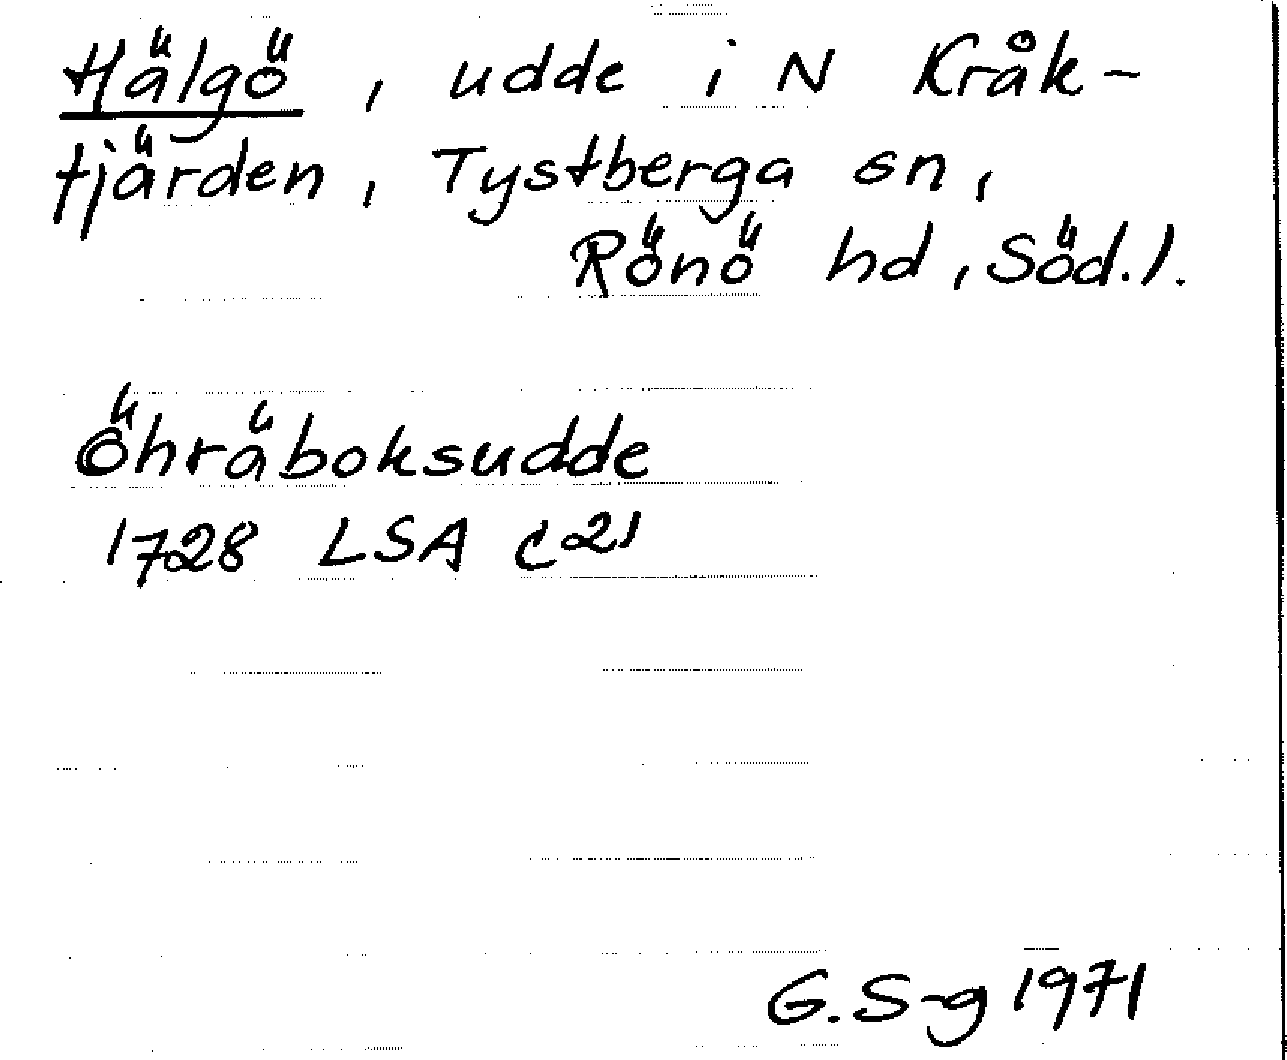 Hälgö, udde i N Kråk-
fjärden, Tystberga sn,
Rönö hd, Söd.l.
Öhräboksudde
1728 LSA C21
G. S-g 1971